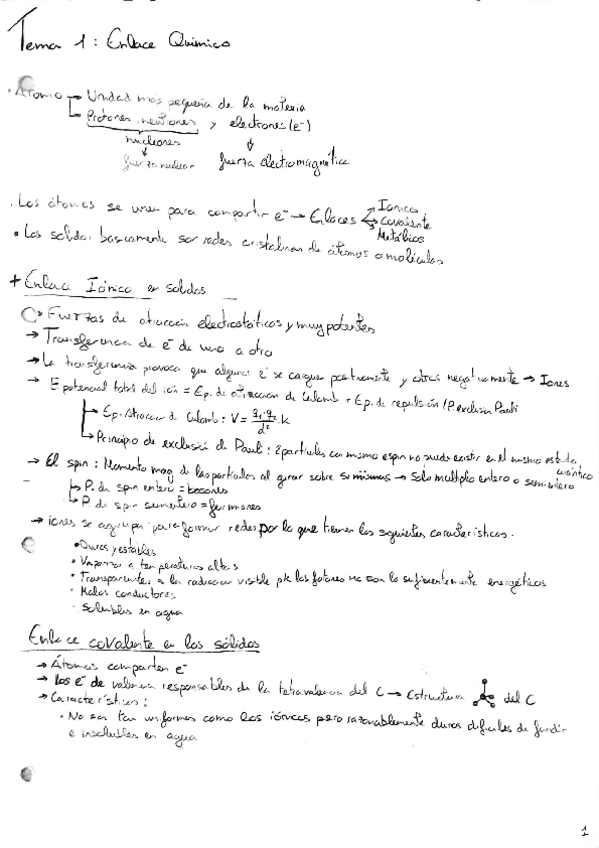 Tema 1: Enlace Químico
· Átomo → Unidad más pequeña de la materia
→ Protones, neutrones y electrones (e⁻)
nucleones
fuerza nuclear fuerza electromagnética
· Los átomos se unen para compartir e⁻ → Enlaces → Iónico
Covalente
Metálicos
• Los solidos basicamente son redes cristalinas de átomos o moléculas
+ Enlace Iónico en solidos
→ Fuerzas de atracción electrostáticas y muy potentes
→ Transferencia de e⁻ de uno a otro
→ La transferencia provoca que algunos e⁻ se carguen positivamente y otros negativamente → Iones
→ E potencial total del ión = Ep. de atraccion de Culomb + Ep. de repulsión / P. exclusión Pauli
→ Ep. Atraccion de Culomb: V = q₁·q₂/d² · K
→ Principio de exclusión de Pauli: 2 particulas con mismo espin no puede existir en el mismo estado cuántico
→ El spin: Momento mag de las particulas al girar sobre si mismas → Solo multiplo entero o semientero
→ P. de spin entero = bosones
→ P. de spin semientero = fermiones
→ iones se agrupan para formar redes por lo que tienen las siguientes caracteristicas.
• Duros y estables
• Vaporizan a temperaturas altas
• Transparentes a la radiacion visible pk los fotones no son lo suficientemente energéticos
• Malos conductores
· Solubles en agua
Enlace covalente en los sólidos
→ Átomos comparten e⁻
→ los e⁻ de valencia responsables de la tetravalencia del C → Estructura del C
→ Caracteristicas:
· No son tan uniformes como los iónicos pero razonablemente duros dificiles de fundir
e insolubles en agua
1